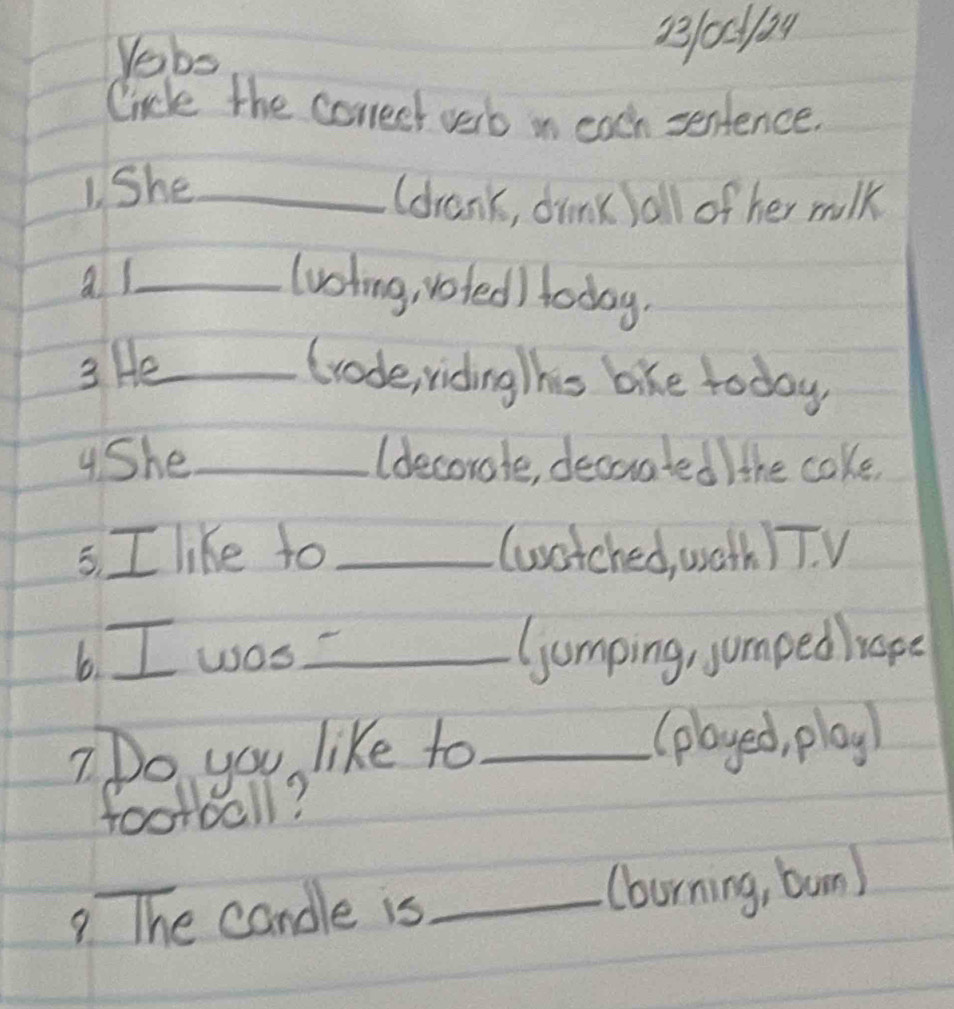 23/Oct/24
Verbs
Circle the correct verb in each sentence.
1. She ________ (drank, drink) all of her milk
2. I ________ (voting, voted) today.
3 He ________ (rode, riding) his bike today.
4. She ________ (decorate, decorated) the cake.
5. I like to ________ (watched, wath) T.V
6. I was ________ (jumping, jumped) rope
7 Do you like to ________ (played, play)
football?
9 The candle is ________ (burning, burn)